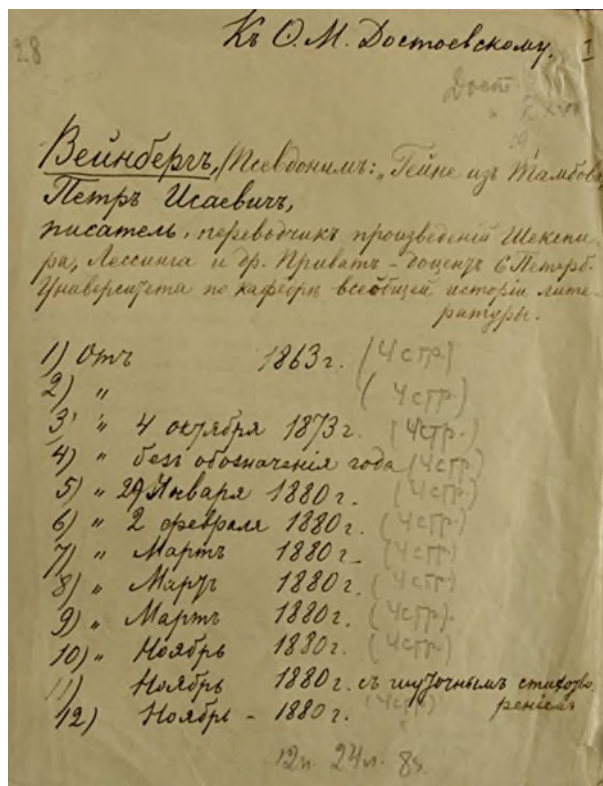 28
Къ Ѳ. М. Достоевскому. I
Дост.
Вейнбергъ, (Псевдонимъ: „Гейне изъ Тамбова
Петръ Исаевичъ,
писатель, переводчикъ произведеній Шекспи-
ра, Лессинга и др. Приватъ-доцентъ С Петерб.
Университета по кафедрѣ всеобщей исторіи лите-
ратуры.
1) Отъ 1863 г. (4 стр)
2) " (4 стр.)
3) " 4 октября 1873 г. (4 стр.)
4) " безъ обозначенія года (4 стр)
5) " 29 Января 1880 г. (4 стр.)
6) " 2 февраля 1880 г. (4 стр.)
7) " Мартъ 1880 г. (4 стр)
8) " Мартъ 1880 г. (4 стр)
9) " Мартъ 1880 г. (4 стр).
10) " Ноябрь 1880 г. (4 стр.)
11) Ноябрь 1880 г. съ шуточнымъ стихотво
реніемъ
12) Ноябрь - 1880 г. (4 стр)
12 п. 24 л.